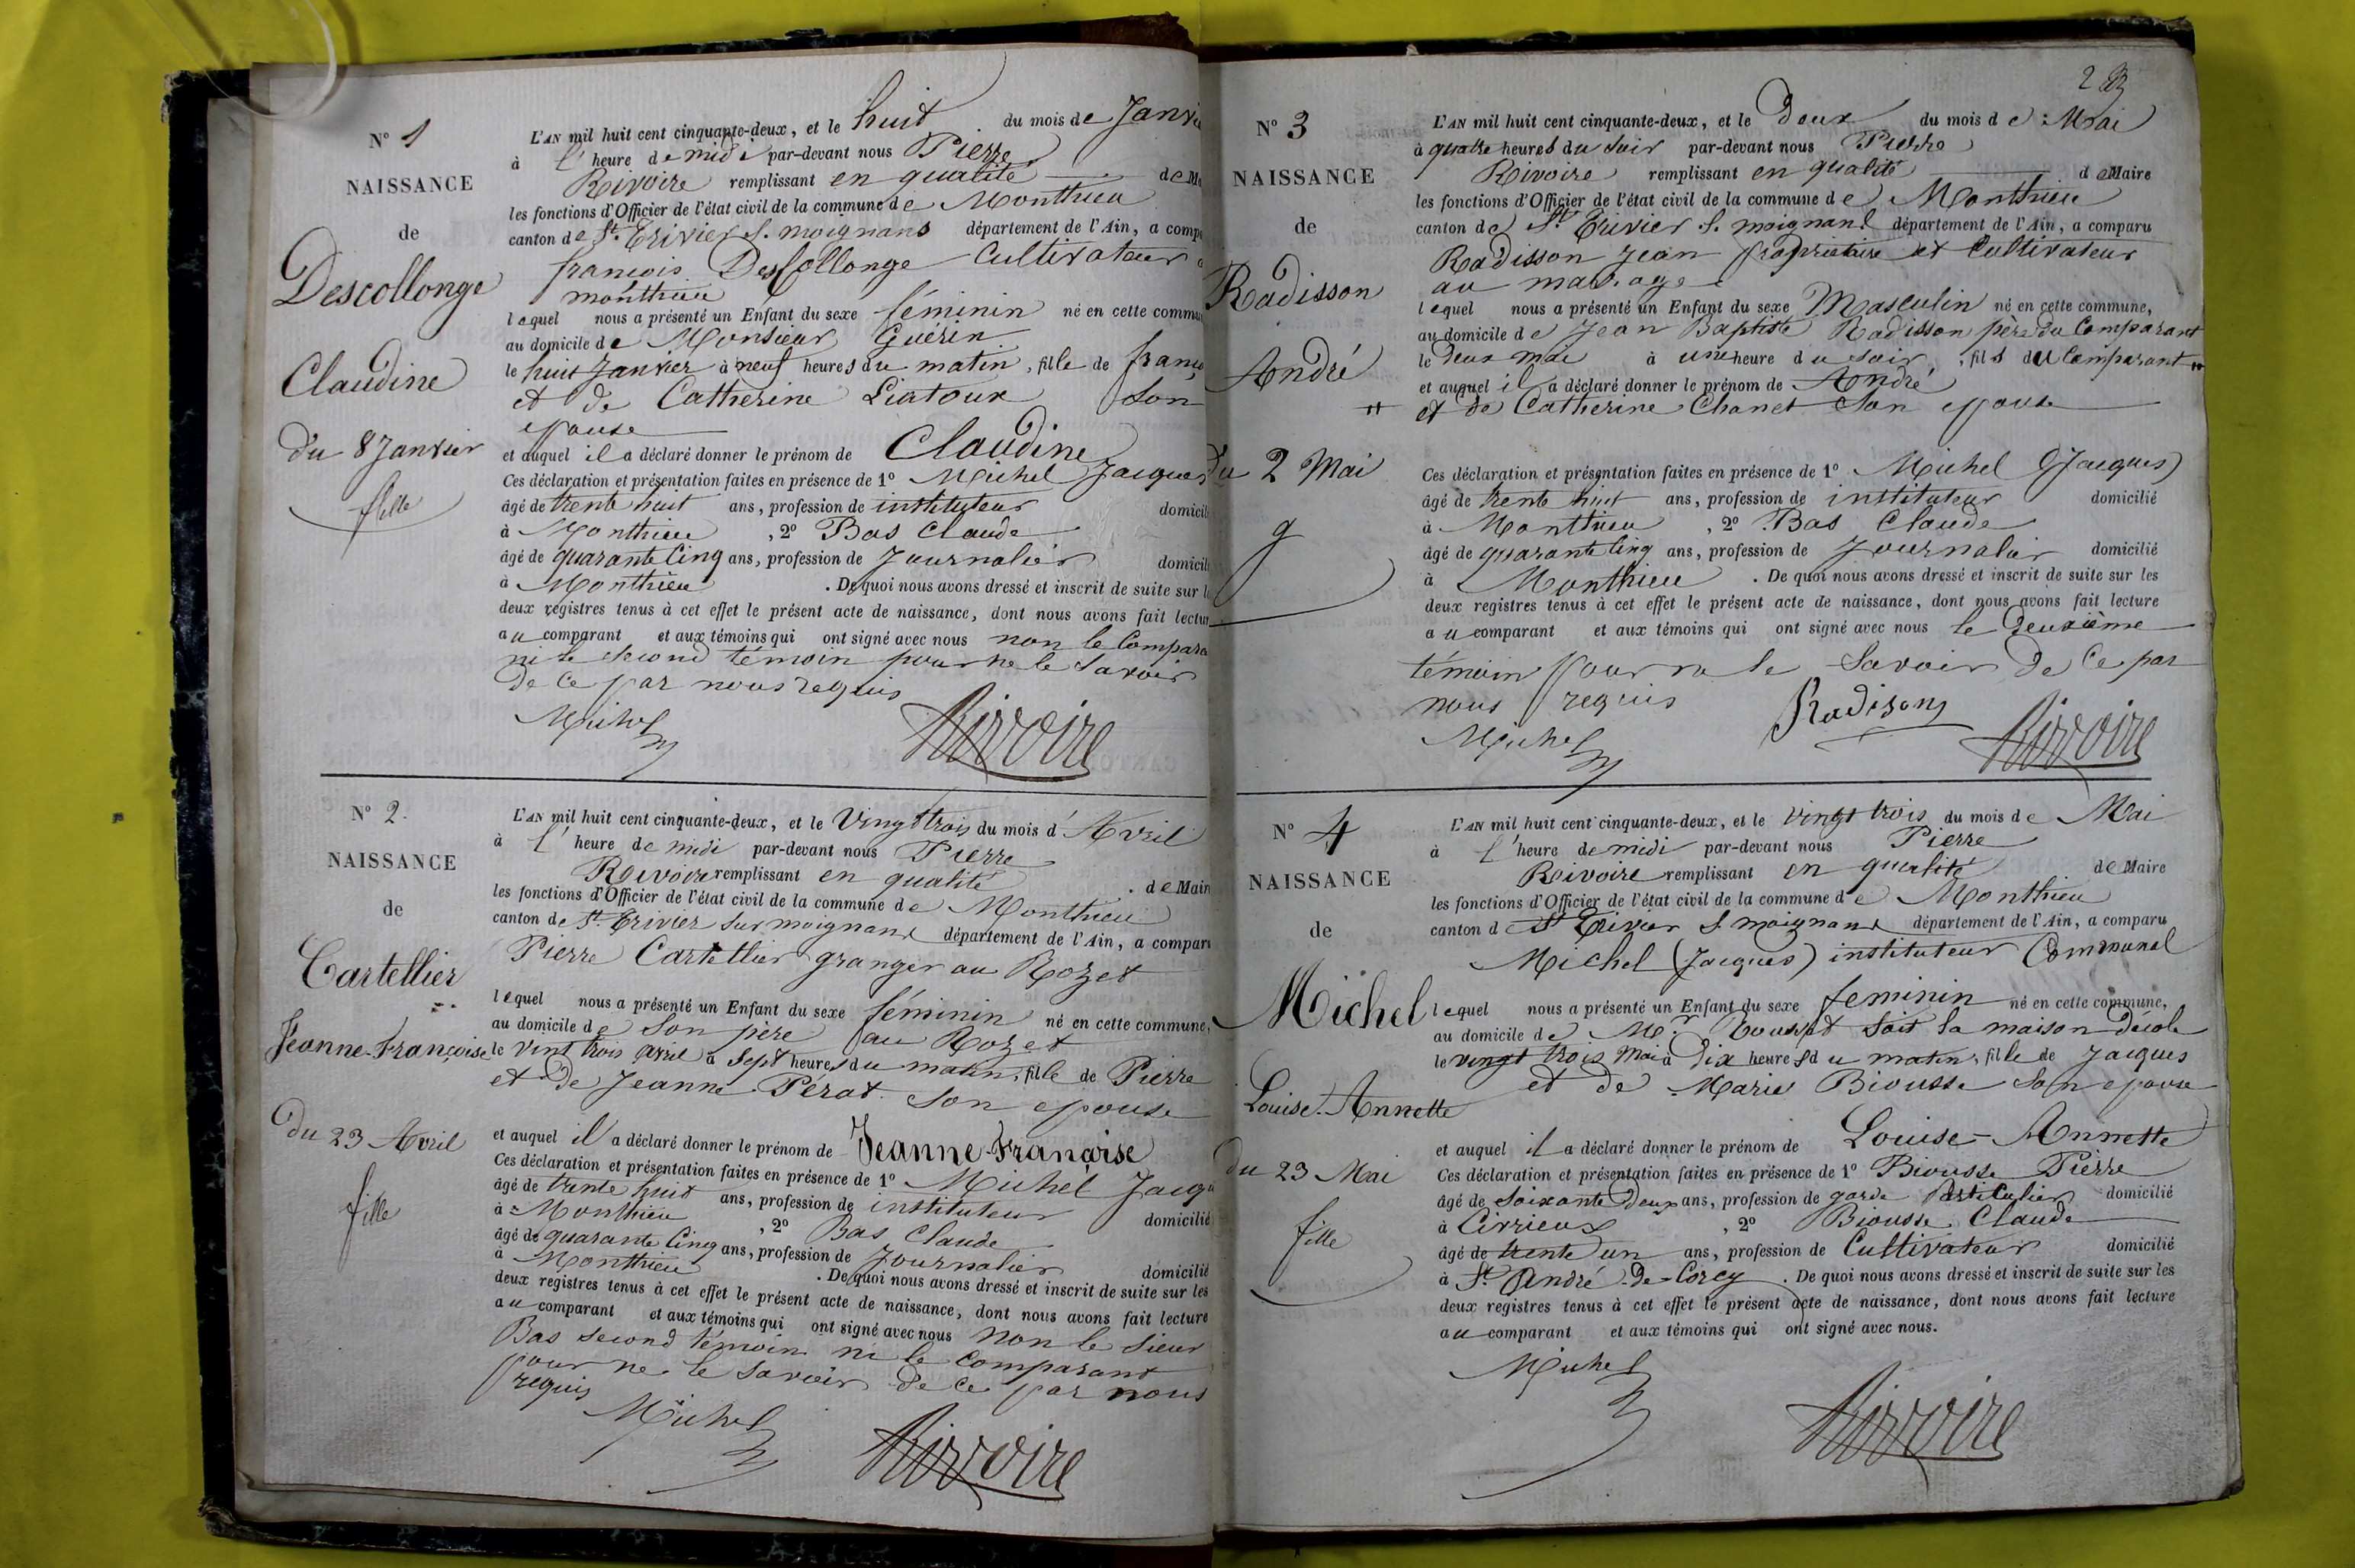 N° 1
NAISSANCE
de
Descollonge
Claudine
du 8 Janvier
fille
L'AN mil huit cent cinquante-deux, et le huit du mois de Janvie
à l'heure de midi par-devant nous Pierre
Rivoire remplissant en qualité de M
les fonctions d'Officier de l'état civil de la commune de Monthieu
canton de St. Trivier s. moignans département de l'Ain, a comp
françois Descollonge Cultivateur a
monthieu
lequel nous a présenté un Enfant du sexe féminin né en cette commu
au domicile de Monsieur Guérin
le huit Janvier à neuf heures du matin, fille de franç
et de Catherine Liatoux son
epouse
et auquel il a déclaré donner le prénom de Claudine
Ces déclaration et présentation faites en présence de 1° Michel Jacques
âgé de trente huit ans, profession de instituteur domicil
à Monthieu, 2° Bas Claude
âgé de quarante Cinq ans, profession de Journalier domicil
à Monthieu. De quoi nous avons dressé et inscrit de suite sur l
deux registres tenus à cet effet le présent acte de naissance, dont nous avons fait lectur
au comparant et aux témoins qui ont signé avec nous non le Compara
ni le second témoin pour ne le savoir
de ce par nous requis
Michel
Rivoire
N° 2.
NAISSANCE
de
Cartellier
Jeanne-Françoise
Du 23 Avril
fille
L'AN mil huit cent cinquante-deux, et le Vingt trois du mois d'Avril
à l'heure de midi par-devant nous Pierre
Rivoire remplissant en qualité de Mair
les fonctions d'Officier de l'état civil de la commune de Monthieu
canton de St. Trivier sur moignans département de l'Ain, a compar
Pierre Cartellier granger au Rozet
lequel nous a présenté un Enfant du sexe féminin né en cette commune,
au domicile de son père au Rozet
le vint trois avril à Sept heures du matin, fille de Pierre
et de Jeanne Pérat son epouse
et auquel il a déclaré donner le prénom de Jeanne-Françoise
Ces déclaration et présentation faites en présence de 1° Michel Jacqu
âgé de trente huit ans, profession de instituteur domicilié
à Monthieu, 2° Bas Claude
âgé de quarante Cinq ans, profession de Journalier domicilié
à Monthieu. De quoi nous avons dressé et inscrit de suite sur les
deux registres tenus à cet effet le présent acte de naissance, dont nous avons fait lecture
au comparant et aux témoins qui ont signé avec nous non le sieur
Bas second témoin ni le comparant
pour ne le savoir de ce par nous
requis
Michel
Rivoire
N° 3
NAISSANCE
de
Radisson
André
du 2 Mai
g
L'AN mil huit cent cinquante-deux, et le Deux du mois de Mai
à quatre heures du soir par-devant nous Pierre
Rivoire remplissant en qualité de Maire
les fonctions d'Officier de l'état civil de la commune de Monthieu
canton de St Trivier s. moignans département de l'Ain, a comparu
Radisson Jean propriétaire et Cultivateur
au
lequel nous a présenté un Enfant du sexe Masculin né en cette commune,
au domicile de Jean Baptiste Radisson père du Comparant
le deux mai à une heure du soir, fils du Comparant "
et auquel il a déclaré donner le prénom de André
" et de Catherine Chanet son epouse
Ces déclaration et présentation faites en présence de 1° Michel (Jacques)
âgé de trente huit ans, profession de instituteur domicilié
à Monthieu, 2° Bas Claude
âgé de quarante cinq ans, profession de Journalier domicilié
à Monthieu. De quoi nous avons dressé et inscrit de suite sur les
deux registres tenus à cet effet le présent acte de naissance, dont nous avons fait lecture
au comparant et aux témoins qui ont signé avec nous le Deuxième
témoin pour ne le Savoir De Ce par
nous requis
Radison
Michel
Rivoire
N° 4
NAISSANCE
de
Michel
Louise-Annette
du 23 Mai
fille
L'AN mil huit cent cinquante-deux, et le vingt trois du mois de Mai
à l'heure de midi par-devant nous Pierre
Rivoire remplissant en qualité de Maire
les fonctions d'Officier de l'état civil de la commune de Monthieu
canton de St Trivier s moignans département de l'Ain, a comparu
Michel (Jacques) instituteur Communal
lequel nous a présenté un Enfant du sexe feminin né en cette commune,
au domicile de Mr. soit la maison d'école
le vingt trois Mai à Dix heures du matin, fille de Jacques
et de Marie Biousse Son epouse
et auquel il a déclaré donner le prénom de Louise-Annette
Ces déclaration et présentation faites en présence de 1° Biousse Pierre
âgé de Soixante Deux ans, profession de garde Particulier domicilié
à Civrieux, 2° Biousse Claude
âgé de trente un ans, profession de Cultivateur domicilié
à St. André-De-Corcy. De quoi nous avons dressé et inscrit de suite sur les
deux registres tenus à cet effet le présent acte de naissance, dont nous avons fait lecture
au comparant et aux témoins qui ont signé avec nous.
Michel
Rivoire